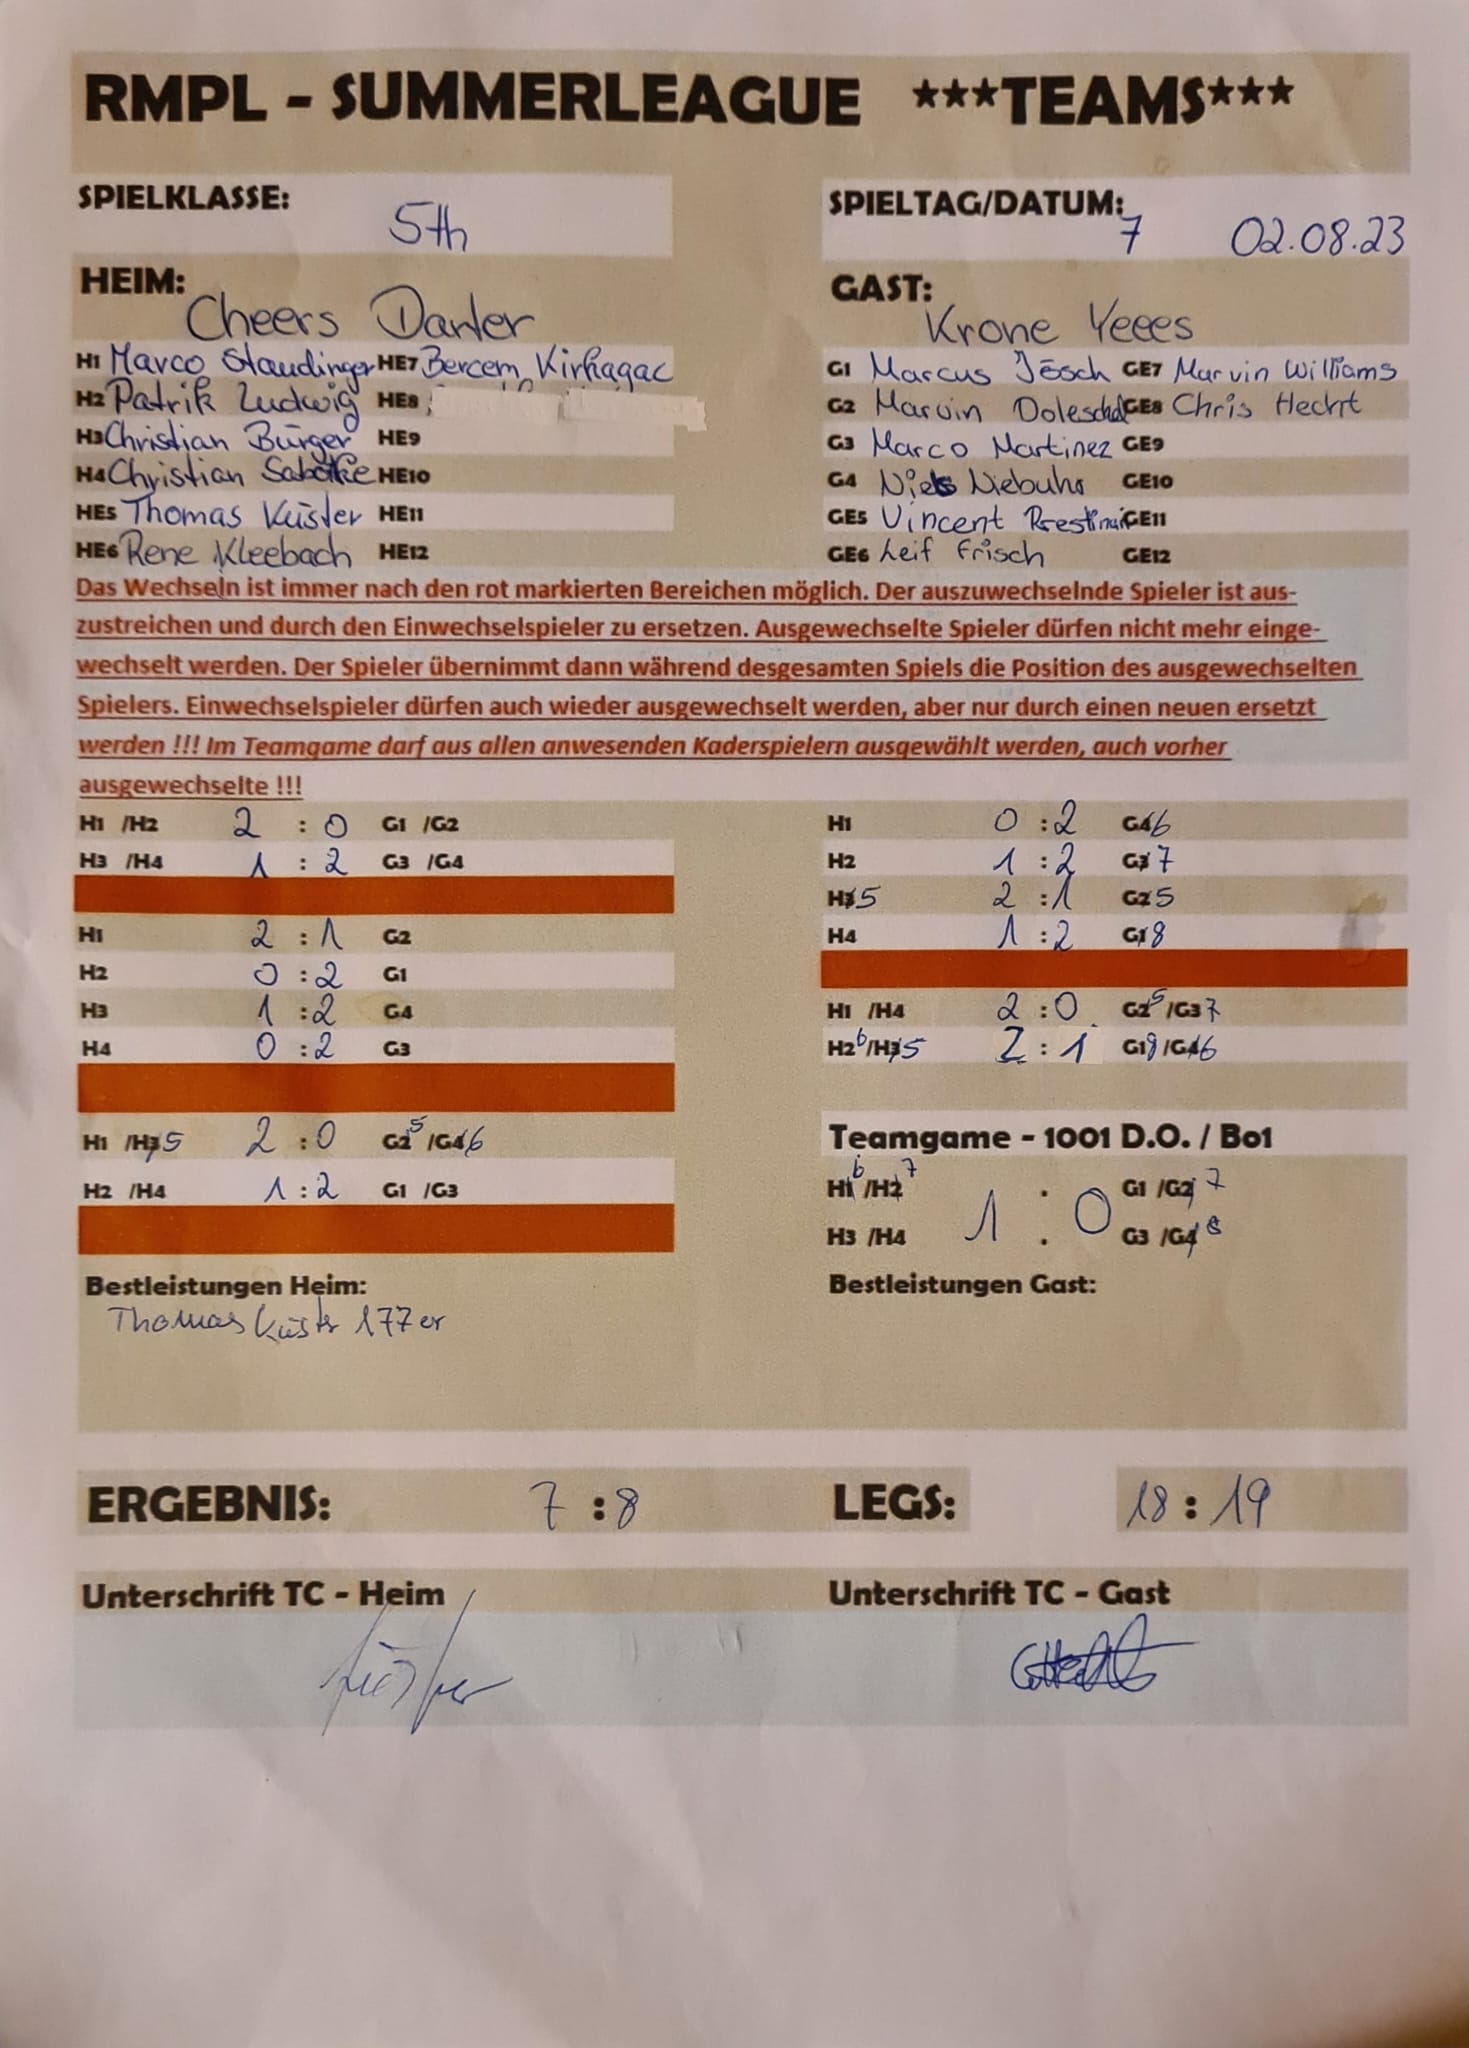 RMPL - SUMMERLEAGUE ***TEAMS***
SPIELKLASSE: 5th
SPIELTAG/DATUM: 7 02.08.23
HEIM: Cheers Darter
GAST: Krone Yeees
H1 Marco Staudinger HE7 Bercem Kirhagac
H2 Patrik Ludwig HE8
H3 Christian Bürger HE9
H4 Christian Sabotke HE10
HE5 Thomas Küster HE11
HE6 Rene Kleebach HE12
G1 Marcus Jösch GE7 Marvin Williams
G2 Marvin GE8 Chris Hecht
G3 Marco Martinez GE9
G4 Niels Niebuhr GE10
GE5 Vincent GE11
GE6 Leif Frisch GE12
Das Wechseln ist immer nach den rot markierten Bereichen möglich. Der auszuwechselnde Spieler ist aus-
zustreichen und durch den Einwechselspieler zu ersetzen. Ausgewechselte Spieler dürfen nicht mehr einge-
wechselt werden. Der Spieler übernimmt dann während desgesamten Spiels die Position des ausgewechselten
Spielers. Einwechselspieler dürfen auch wieder ausgewechselt werden, aber nur durch einen neuen ersetzt
werden !!! Im Teamgame darf aus allen anwesenden Kaderspielern ausgewählt werden, auch vorher
ausgewechselte !!!
H1 /H2 2 : 0 G1 /G2
H3 /H4 1 : 2 G3 /G4
H1 2 : 1 G2
H2 0 : 2 G1
H3 1 : 2 G4
H4 0 : 2 G3
H1 /H3 5 2 : 0 G2 5 /G4 6
H2 /H4 1 : 2 G1 /G3
H1 0 : 2 G4 6
H2 1 : 2 G3 7
H3 5 2 : 1 G2 5
H4 1 : 2 G1 8
H1 /H4 2 : 0 G2 5 /G3 7
H2 6 /H3 5 2 : 1 G1 8 /G4 6
Teamgame - 1001 D.O. / Bo1
H1 6 /H2 7 G1 /G2 7
1 : 0
H3 /H4 G3 /G4 8
Bestleistungen Heim:
Thomas Küster 177er
Bestleistungen Gast:
ERGEBNIS: 7 : 8
LEGS: 18 : 19
Unterschrift TC - Heim
Unterschrift TC - Gast